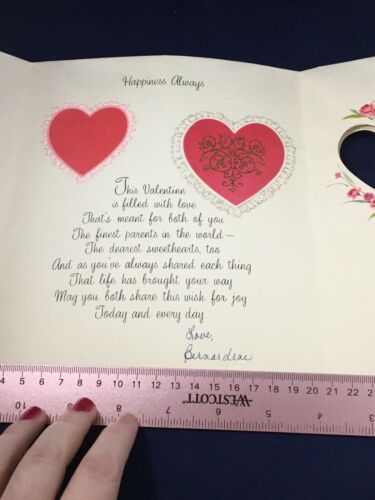 Happiness Always
This Valentine
is filled with love
That's meant for both of you
The finest parents in the world—
The dearest sweethearts, too
And as you've always shared each thing
That life has brought your way
May you both share this wish for joy
Today and every day
Love,
Bernardine
4 5 6 7 8 9 10 11 12 13 14 15 16 17 18 19 20 21 22 23
WESTCOTT
10 9 8 7 6 5 4 3